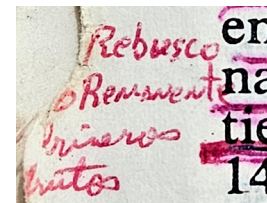 Rebusco
o Remanente
Primeros
frutos
en
na
tie
14